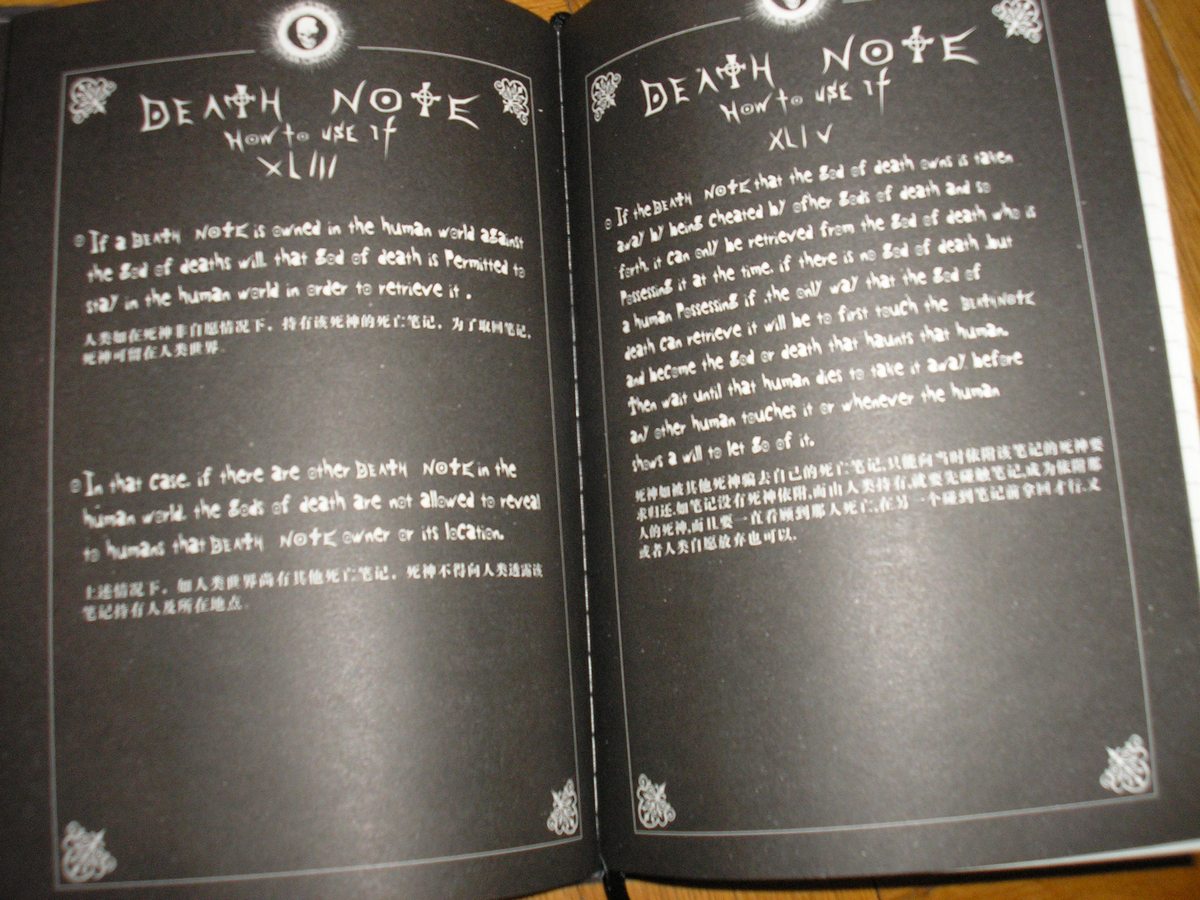 DEATH NOTE
How to use it
XLIII
If a DEATH NOTE is owned in the human world against
the god of deaths will, that god of death is permitted to
stay in the human world in order to retrieve it.
人类如在死神非自愿情况下，持有该死神的死亡笔记，为了取回笔记，
死神可留在人类世界。
In that case, if there are other DEATH NOTE in the
human world, the gods of death are not allowed to reveal
to humans that DEATH NOTE owner or its location.
上述情况下，如人类世界尚有其他死亡笔记，死神不得向人类透露该
笔记持有人及所在地点。
DEATH NOTE
How to use it
XLIV
If the DEATH NOTE that the god of death owns is taken
away by being cheated by other gods of death and so
forth, it can only be retrieved from the god of death who is
possessing it at the time. if there is no god of death but
a human possessing it, the only way that the god of
death can retrieve it will be to first touch the DEATH NOTE
and become the god or death that haunts that human.
Then wait until that human dies to take it away before
any other human touches it or whenever the human
shows a will to let go of it.
死神如被其他死神骗去自己的死亡笔记，只能向当时依附该笔记的死神要
求归还。如笔记没有死神依附，而由人类持有，就要先碰触笔记，成为依附那
人的死神，而且要一直看顾到那人死亡，在另一个碰到笔记前拿回才行。又
或者人类自愿放弃也可以。